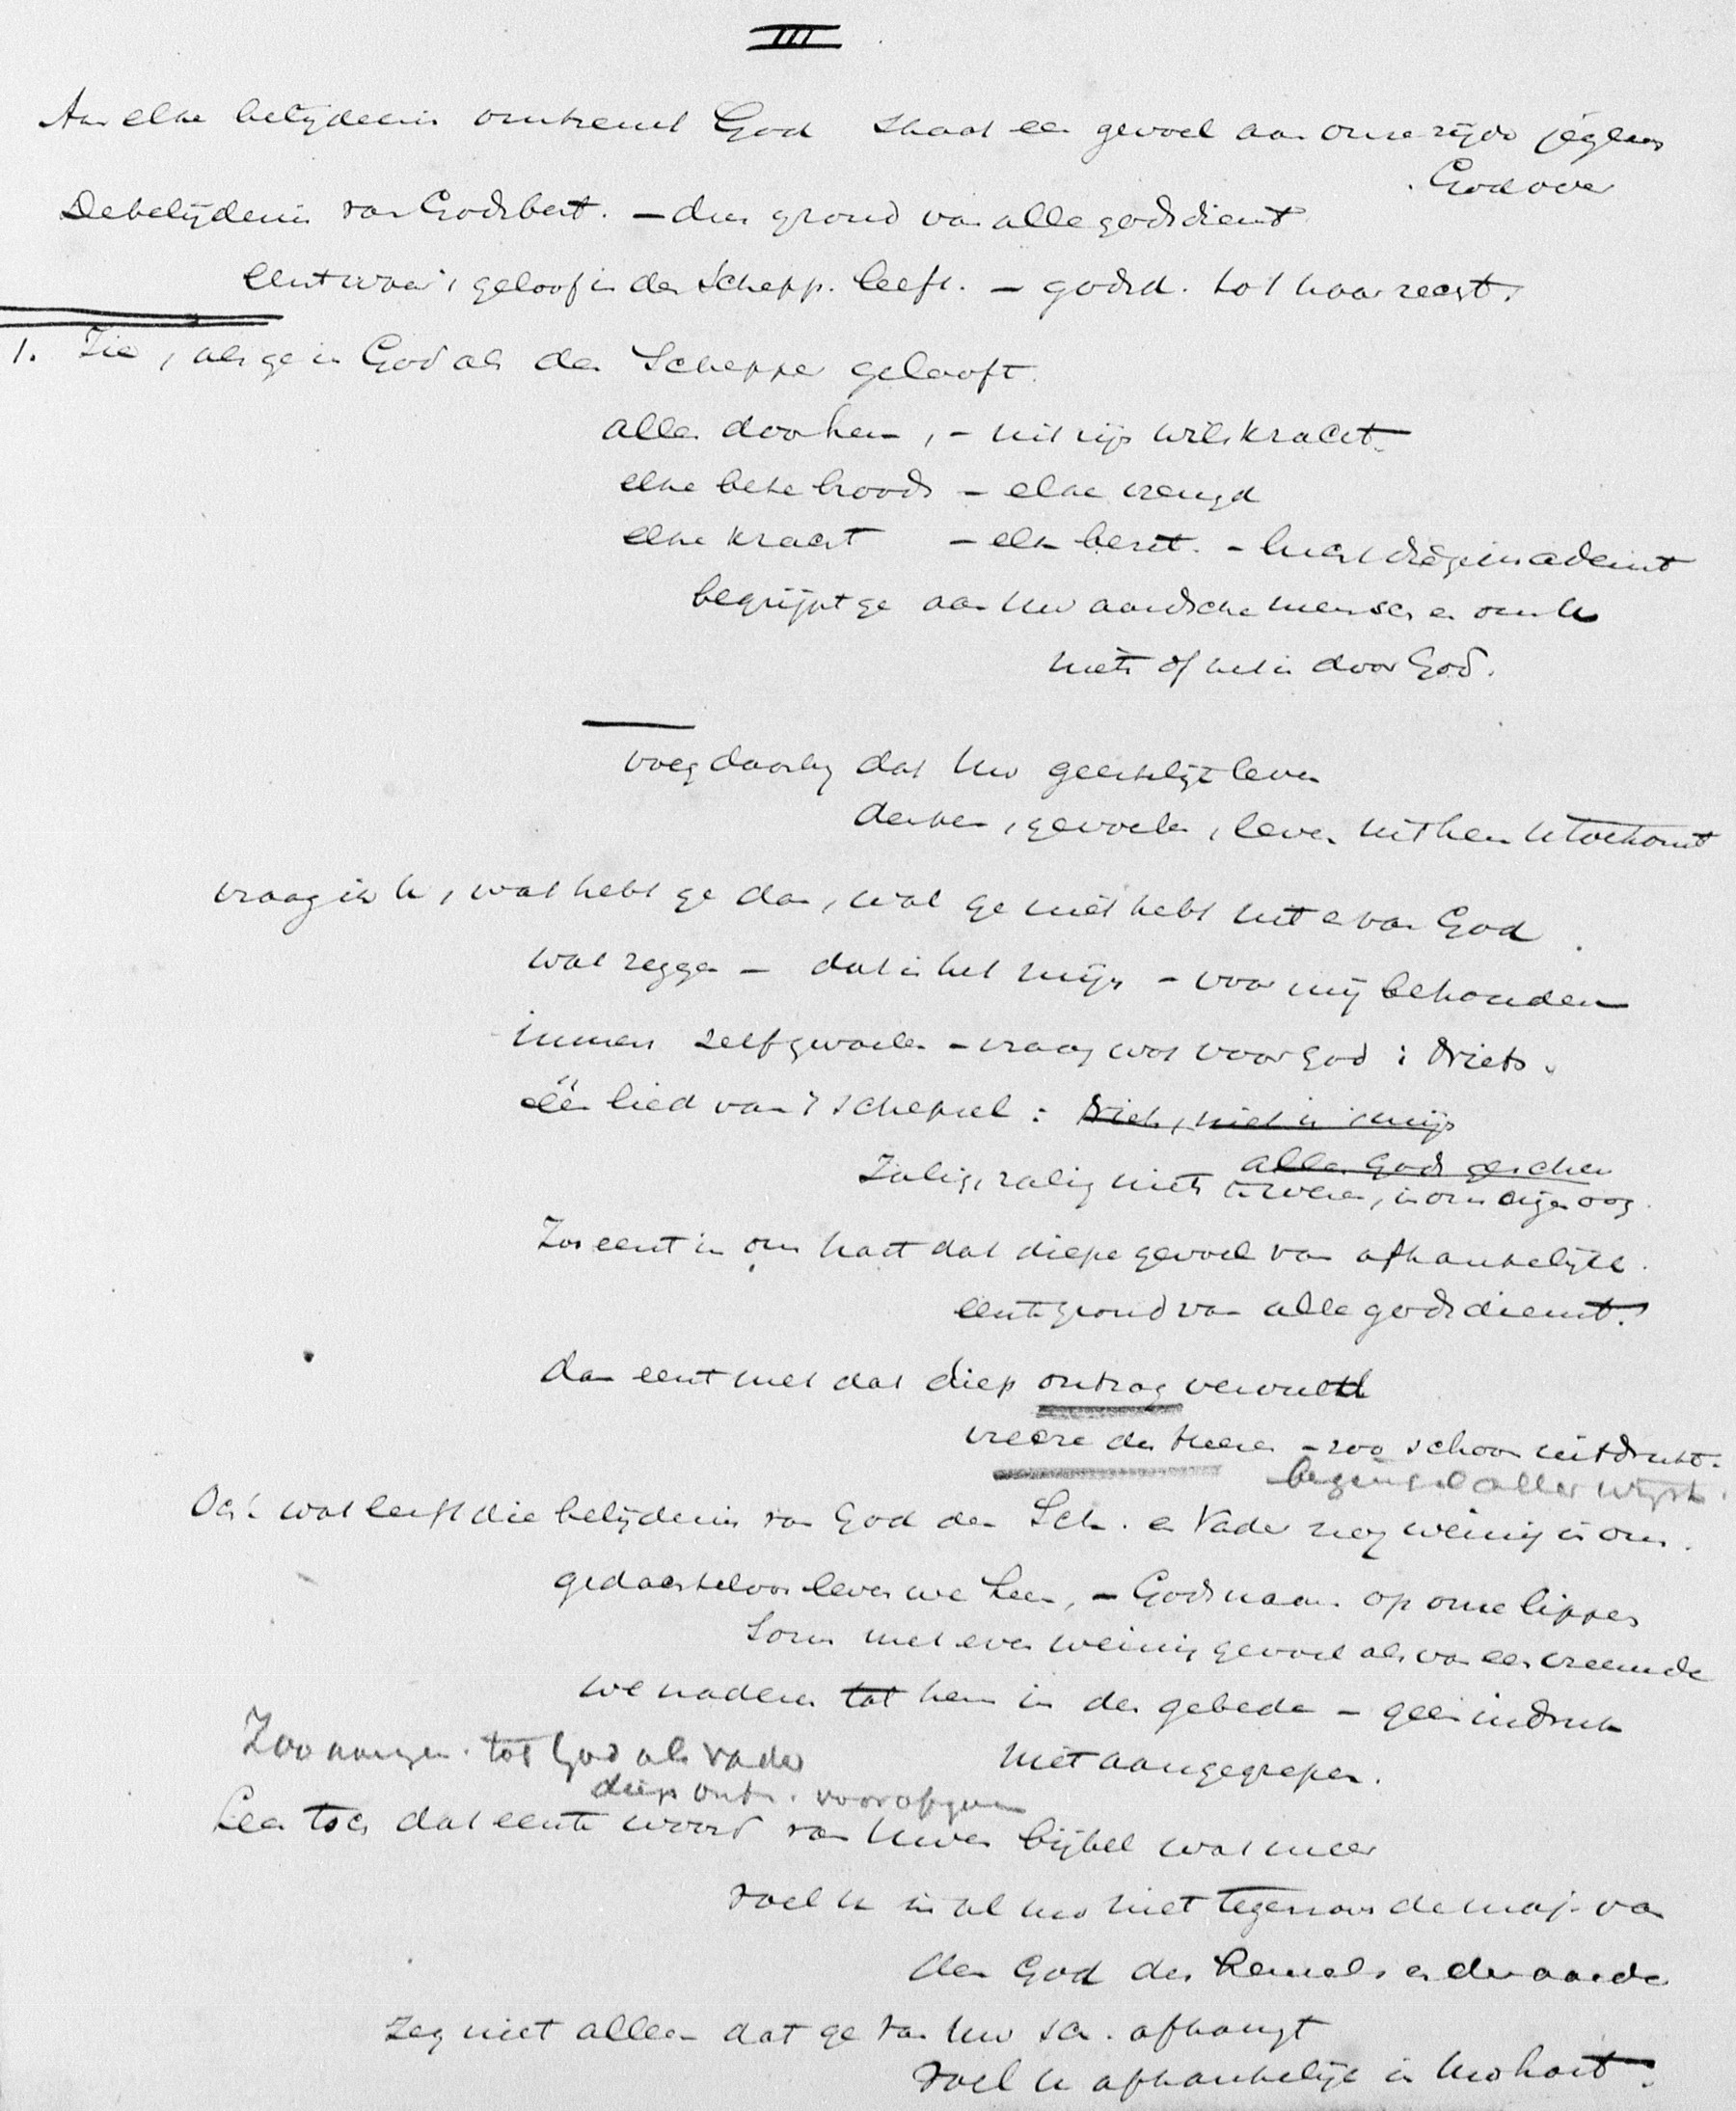 III
Aan elke belijdenis omtrent God staat een gevoel aan onze zijde jegens
God over
De belijdenis van Gods best. — den grond van alle godsdienst
Eerst waar 't geloof in den Schepp. leeft. — godsd. tot haar recht.
1. Zie, als ge in God als den Schepper gelooft.
alles door hem, – uit zijn wilskracht.
elke bete broods – elke vreugd
elke kracht – elk bezit. – lucht die ge inademt
begrijpt ge aan uw aardsche mensch en om u
niets of het is door God.
voeg daarby dat uw geestelijk leven
denken, gevoelen, leven uit hem u toekomt
vraag ik u, wat hebt ge dan, wat ge niet hebt uit en van God.
wat zeggen – dat is het mijn – voor mij behouden
immers zelfgevoelen – vraag wat voor God : Niets.
één lied van 't schepsel : Niets, niets is 't mijn
alles Gods geschenk
Zalig, zalig niets te wezen, in ons eigen oog.
Zoo eerst in ons hart dat diepe gevoel van afhankelijkh.
eerste grond van alle godsdienst.
dan eerst met dat diep ontzag vervuld
vreeze des Heeren – zoo schoon uitdrukt.
beginsel aller wijsh.
Och wat leeft die belijdenis van God den Sch. en Vader nog weinig in ons.
gedachteloos leven we heen, – Gods naam op onze lippen
soms met even weinig gevoel als van een vreemde
we naderen tot hem in den gebede – geen indruk
niet aangegrepen.
Zoo aangen. tot God als Vader
diep ontz. voorafgaan
Leer toch dat eerste woord van uwen bijbel wat meer
voel u in al uw niet tegenover de maj. van
den God des hemels en der aarde
Zeg niet alleen dat ge van uw Sch. afhangt
voel u afhankelijk in uw hart.